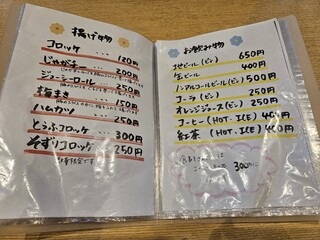 揚げ物
コロッケ … 120円
じゃがチー … 200円
ジューシーロール 250円
梅まき … 150円
ハムカツ … 250円
とうふコロッケ … 300円
そずりコロッケ 250円
お飲み物
地ビール(ビン) 650円
缶ビール 400円
ノンアルコールビール(ビン) 500円
コーラ(ビン) 250円
オレンジジュース(ビン) 250円
コーヒー(HOT. ICE) 400円
紅茶(HOT. ICE) 400円
300円